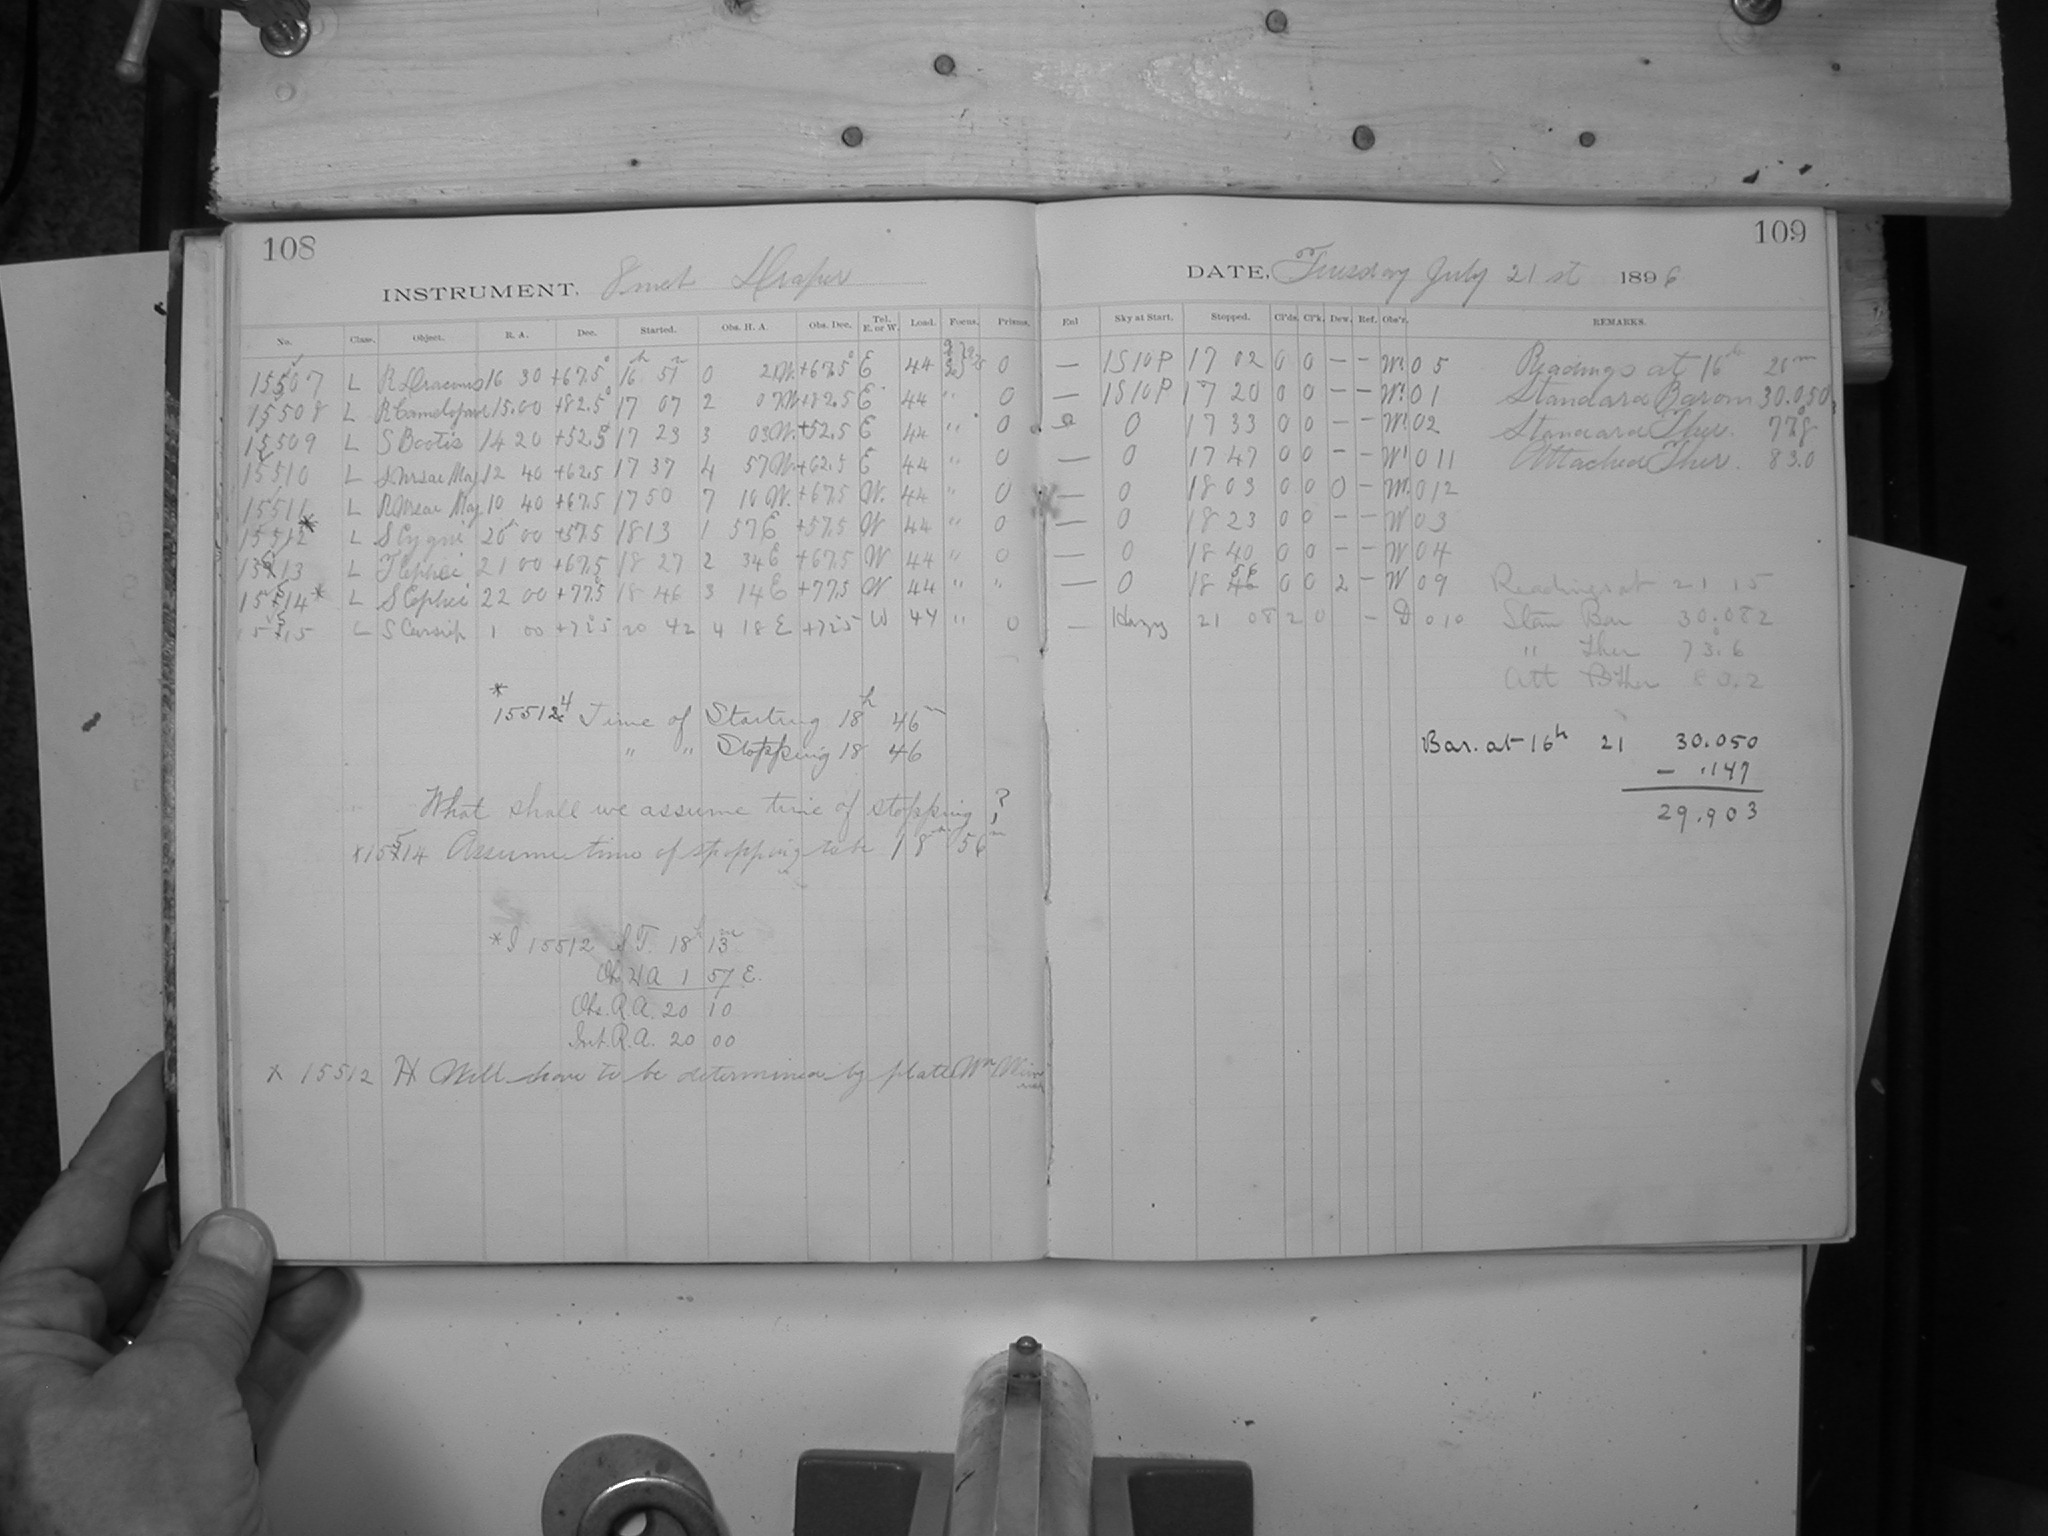 108
109
INSTRUMENT. 8 inch Draper
DATE, Tuesday July 21 st 1896
No. Class. Object. R. A. Dec. Started. Obs. H. A. Obs. Dec. Tel. E. or W. Load. Focus. Prisms.
Enl Sky at Start. Stopped. Cl'ds. Cl'k. Dew. Ref. Obs'r. REMARKS.
15507 L R Draconis 16 30 +67.5° 16h 51m 0 21W. +67.5° E 44 0 — 1S10P 17 02 0 0 – – W. 05 Readings at 16h 20m
15508 L R Camelopar 15.00 +82.5° 17 07 2 07W +82.5 E 44 " 0 — 1S10P 17 20 0 0 – – W. 01 Standard Barom 30.050
15509 L S Bootis 14 20 +52.5° 17 23 3 03W. +52.5 E 44 " 0 0 17 33 0 0 – – W. 02 Standard Ther. 77.8
15510 L S Ursae Maj 12 40 +62.5 17 37 4 57W +62.5 E 44 " 0 — 0 17 47 0 0 – – W. 011 Attached Ther. 83.0
15511 L R Ursae Maj 10 40 +67.5 17 50 7 10 W. +67.5 W. 44 " 0 — 0 18 03 0 0 0 – W. 012
15512 * L S Cygni 20h 00 +57.5 18 13 1 57 E +57.5 W 44 " 0 — 0 18 23 0 0 – – W 03
13 L T Cephei 21 00 +67.5 18 27 2 34 E +67.5 W 44 " 0 — 0 18 40 0 0 – – W 04
15514 * L S Cephei 22 00 +77.5 18 46 3 14 E +77.5 W 44 " " — 0 18 46 56 0 0 2 – W 09 Readings at 21 15
15515 L S Cassiep 1 00 +72.5 20 42 4 18 E +72.5 W 44 " 0 — Hazy 21 08 2 0 – D 010 Stan Bar 30.082
" Ther 73.6
Att Ther 80.2
* 155124 Time of Starting 18h 46m
" " Stopping 18 46
Bar. at 16h 21 30.050
– .147
29.903
What shall we assume time of stopping?
*15514 Assume time of stopping to be 18h 56m
* 15512 S.T. 18h 13m
Ob. H A 1 57 E.
Obs. R.A. 20 10
Int. R.A. 20 00
x 15512 Will have to be determined by plate Wm